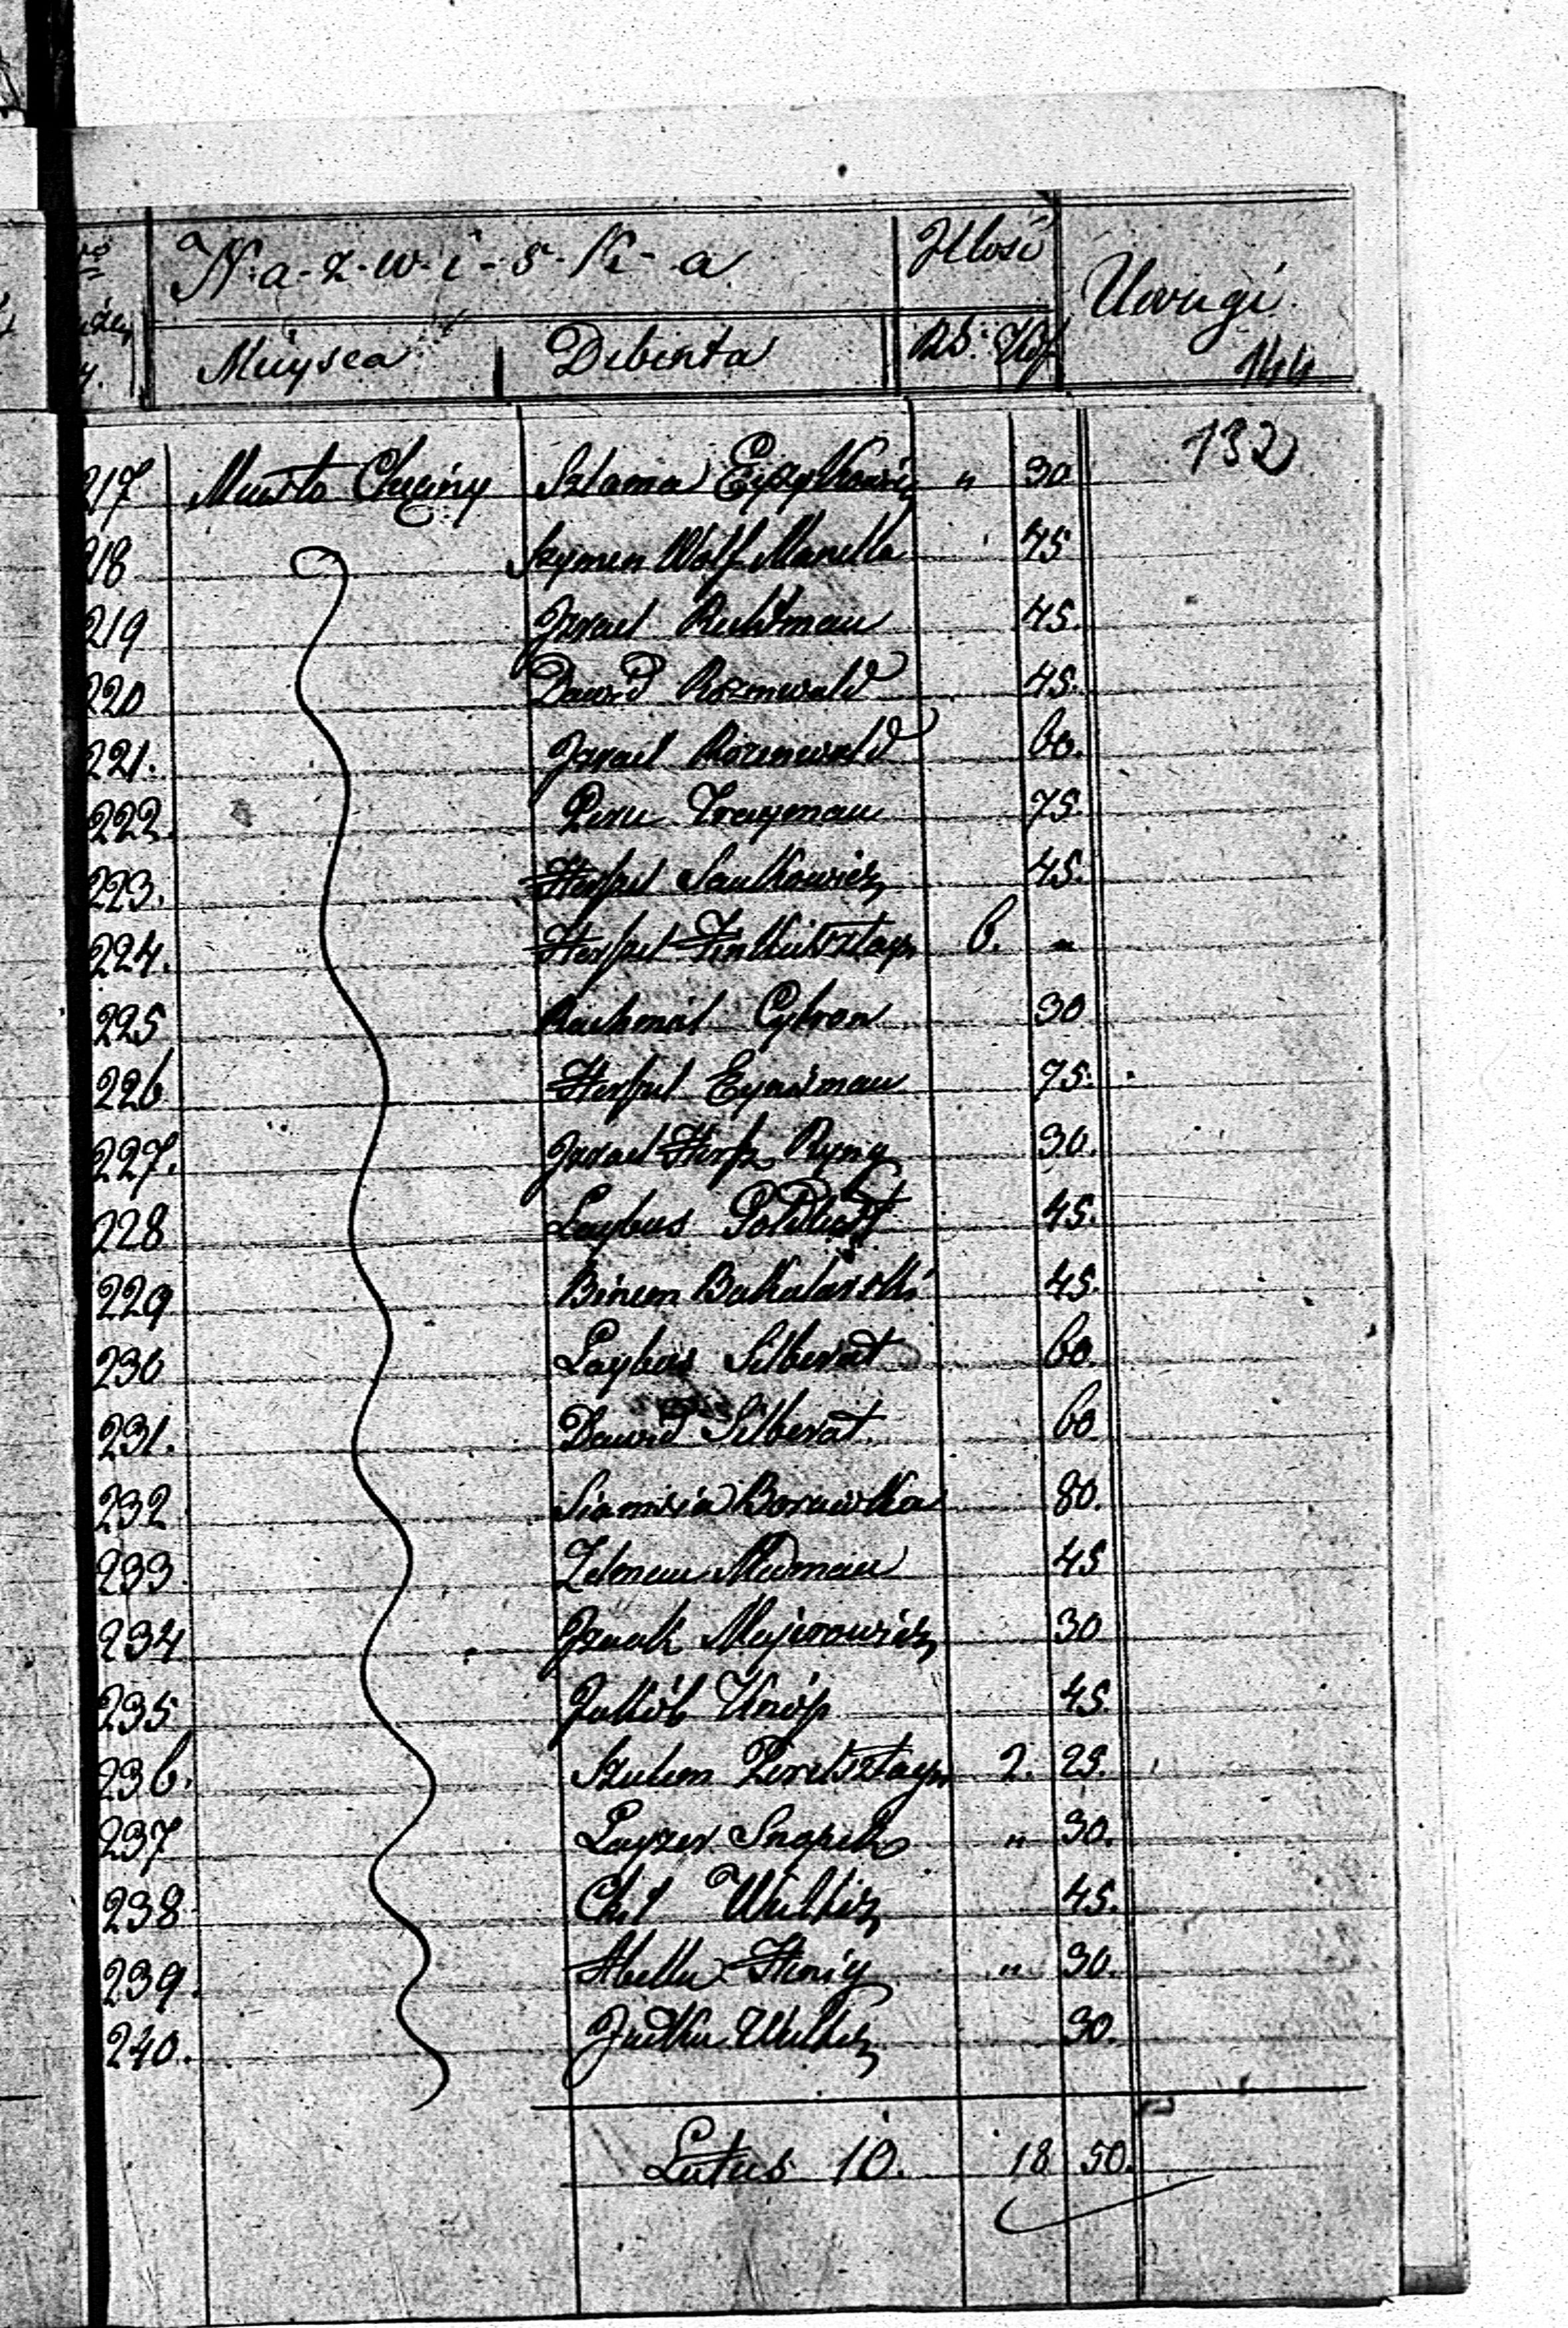 N-a-z-w-i-s-k-a Ilość Uwagi
Mieysca Debenta Rs. Kop. 144
132
217 Miasto Chęciny Szlama Eyzykowicz " 30
218 Szymon Wolf Manella 45
219 Izrael Ruchtman 45.
220 Dawid Rozenwald 45.
221. Izrael Rozenwald 60.
222. Trayman 75.
223. Herszel Saulkowicz 45.
224. Herszel Finkielsztayn 6. "
225 Rachmil Cytron 30
226 Herszel Eynesman 75.
227. Izrael Hersz Ryng 30.
228 Laybus Goldlust 45.
229 Binem Bakalarski 45.
230 Laybus Silberat 60.
231. Dawid Silberat. 60
232 Borawska 80.
233 Zelman Nudman 45
234 Izaak Majerowicz 30
235 Jakób Knóp 45.
236. Szulem Perelsztayn 2. 25.
237 Layzer Snopek " 30.
238 Chil Wulkiz 45.
239. Abella Henig " 30.
240. Judka Wulkiz 30.
Latus 10. 18 50.